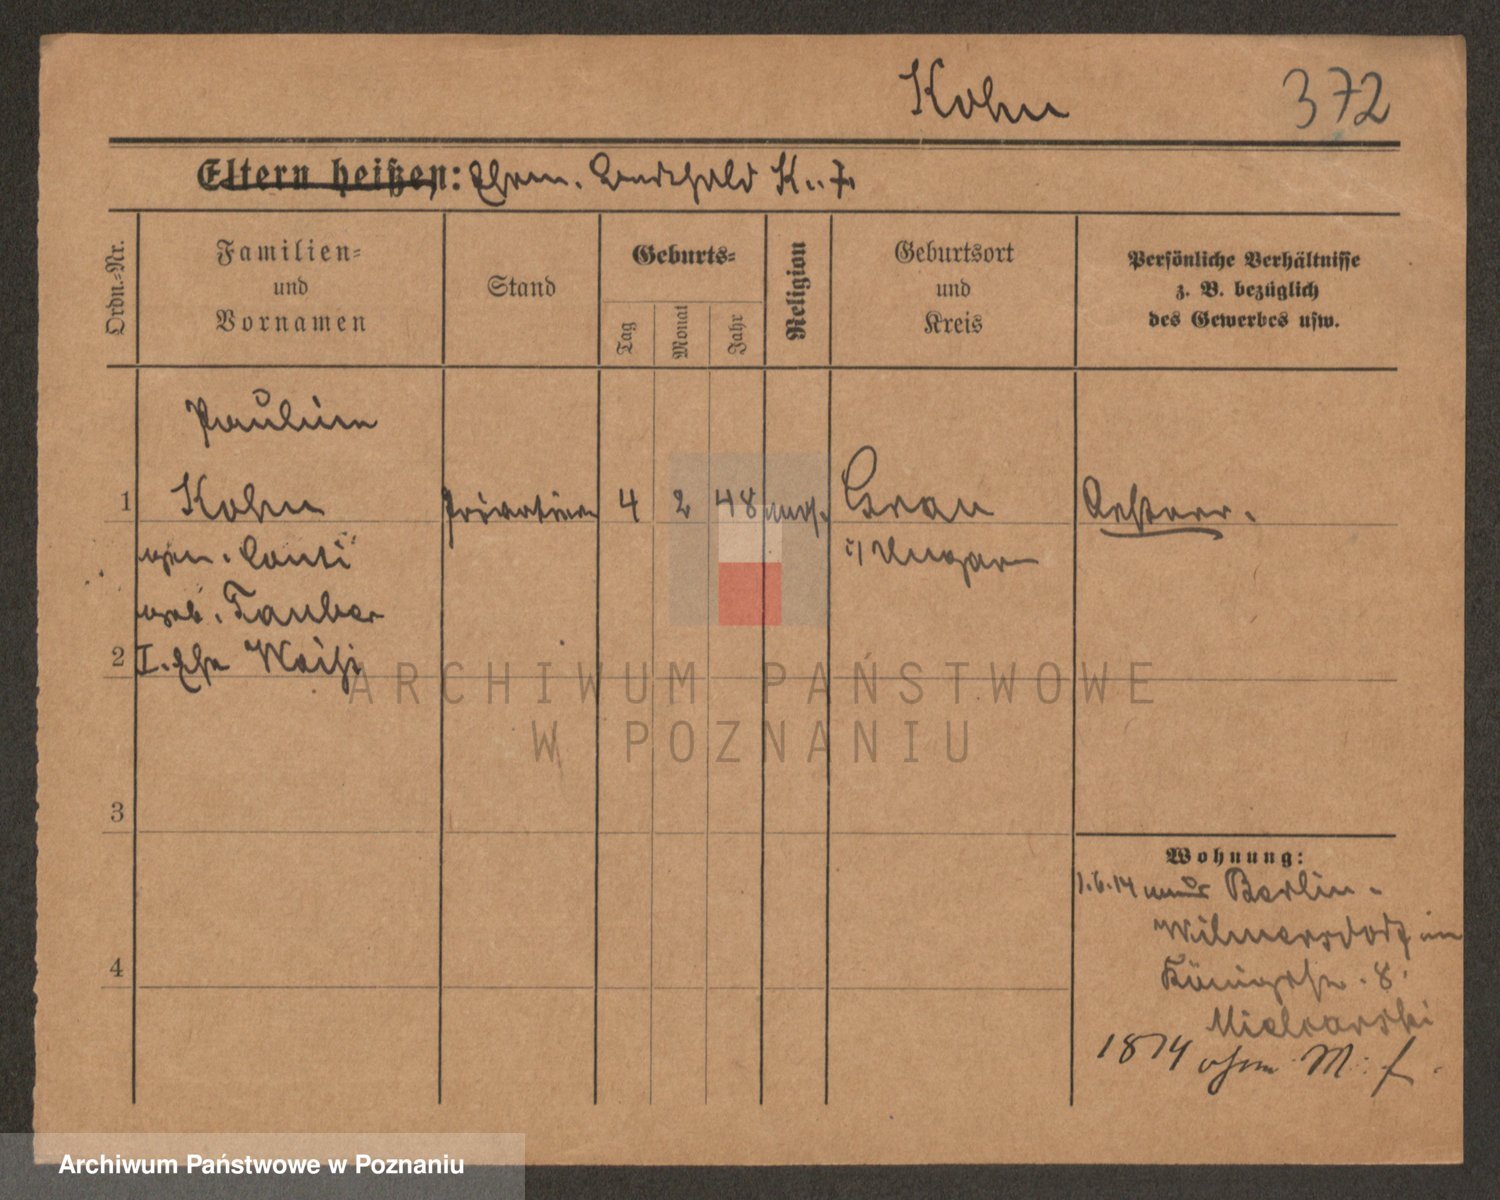 Kohn 372
Eltern heißen: Ehem. Berthold K. f.
Ordn.-Nr.
Familien-
und
Vornamen
Stand
Geburts-
Tag
Monat
Jahr
Religion
Geburtsort
und
Kreis
Persönliche Verhältnisse
z. B. bezüglich
des Gewerbes usw.
Pauline
1 Kohn Privatiere 4 2 48 mos. Gran Oesterr.
gen. Conti i/ Ungarn
geb. Tauber
2 I. Ehe
ARCHIWUM PAŃSTWOWE
W POZNANIU
3
Wohnung:
1.6.14 Berlin-
Wilmersdorf
4
8
1874 M. f.
Archiwum Państwowe w Poznaniu